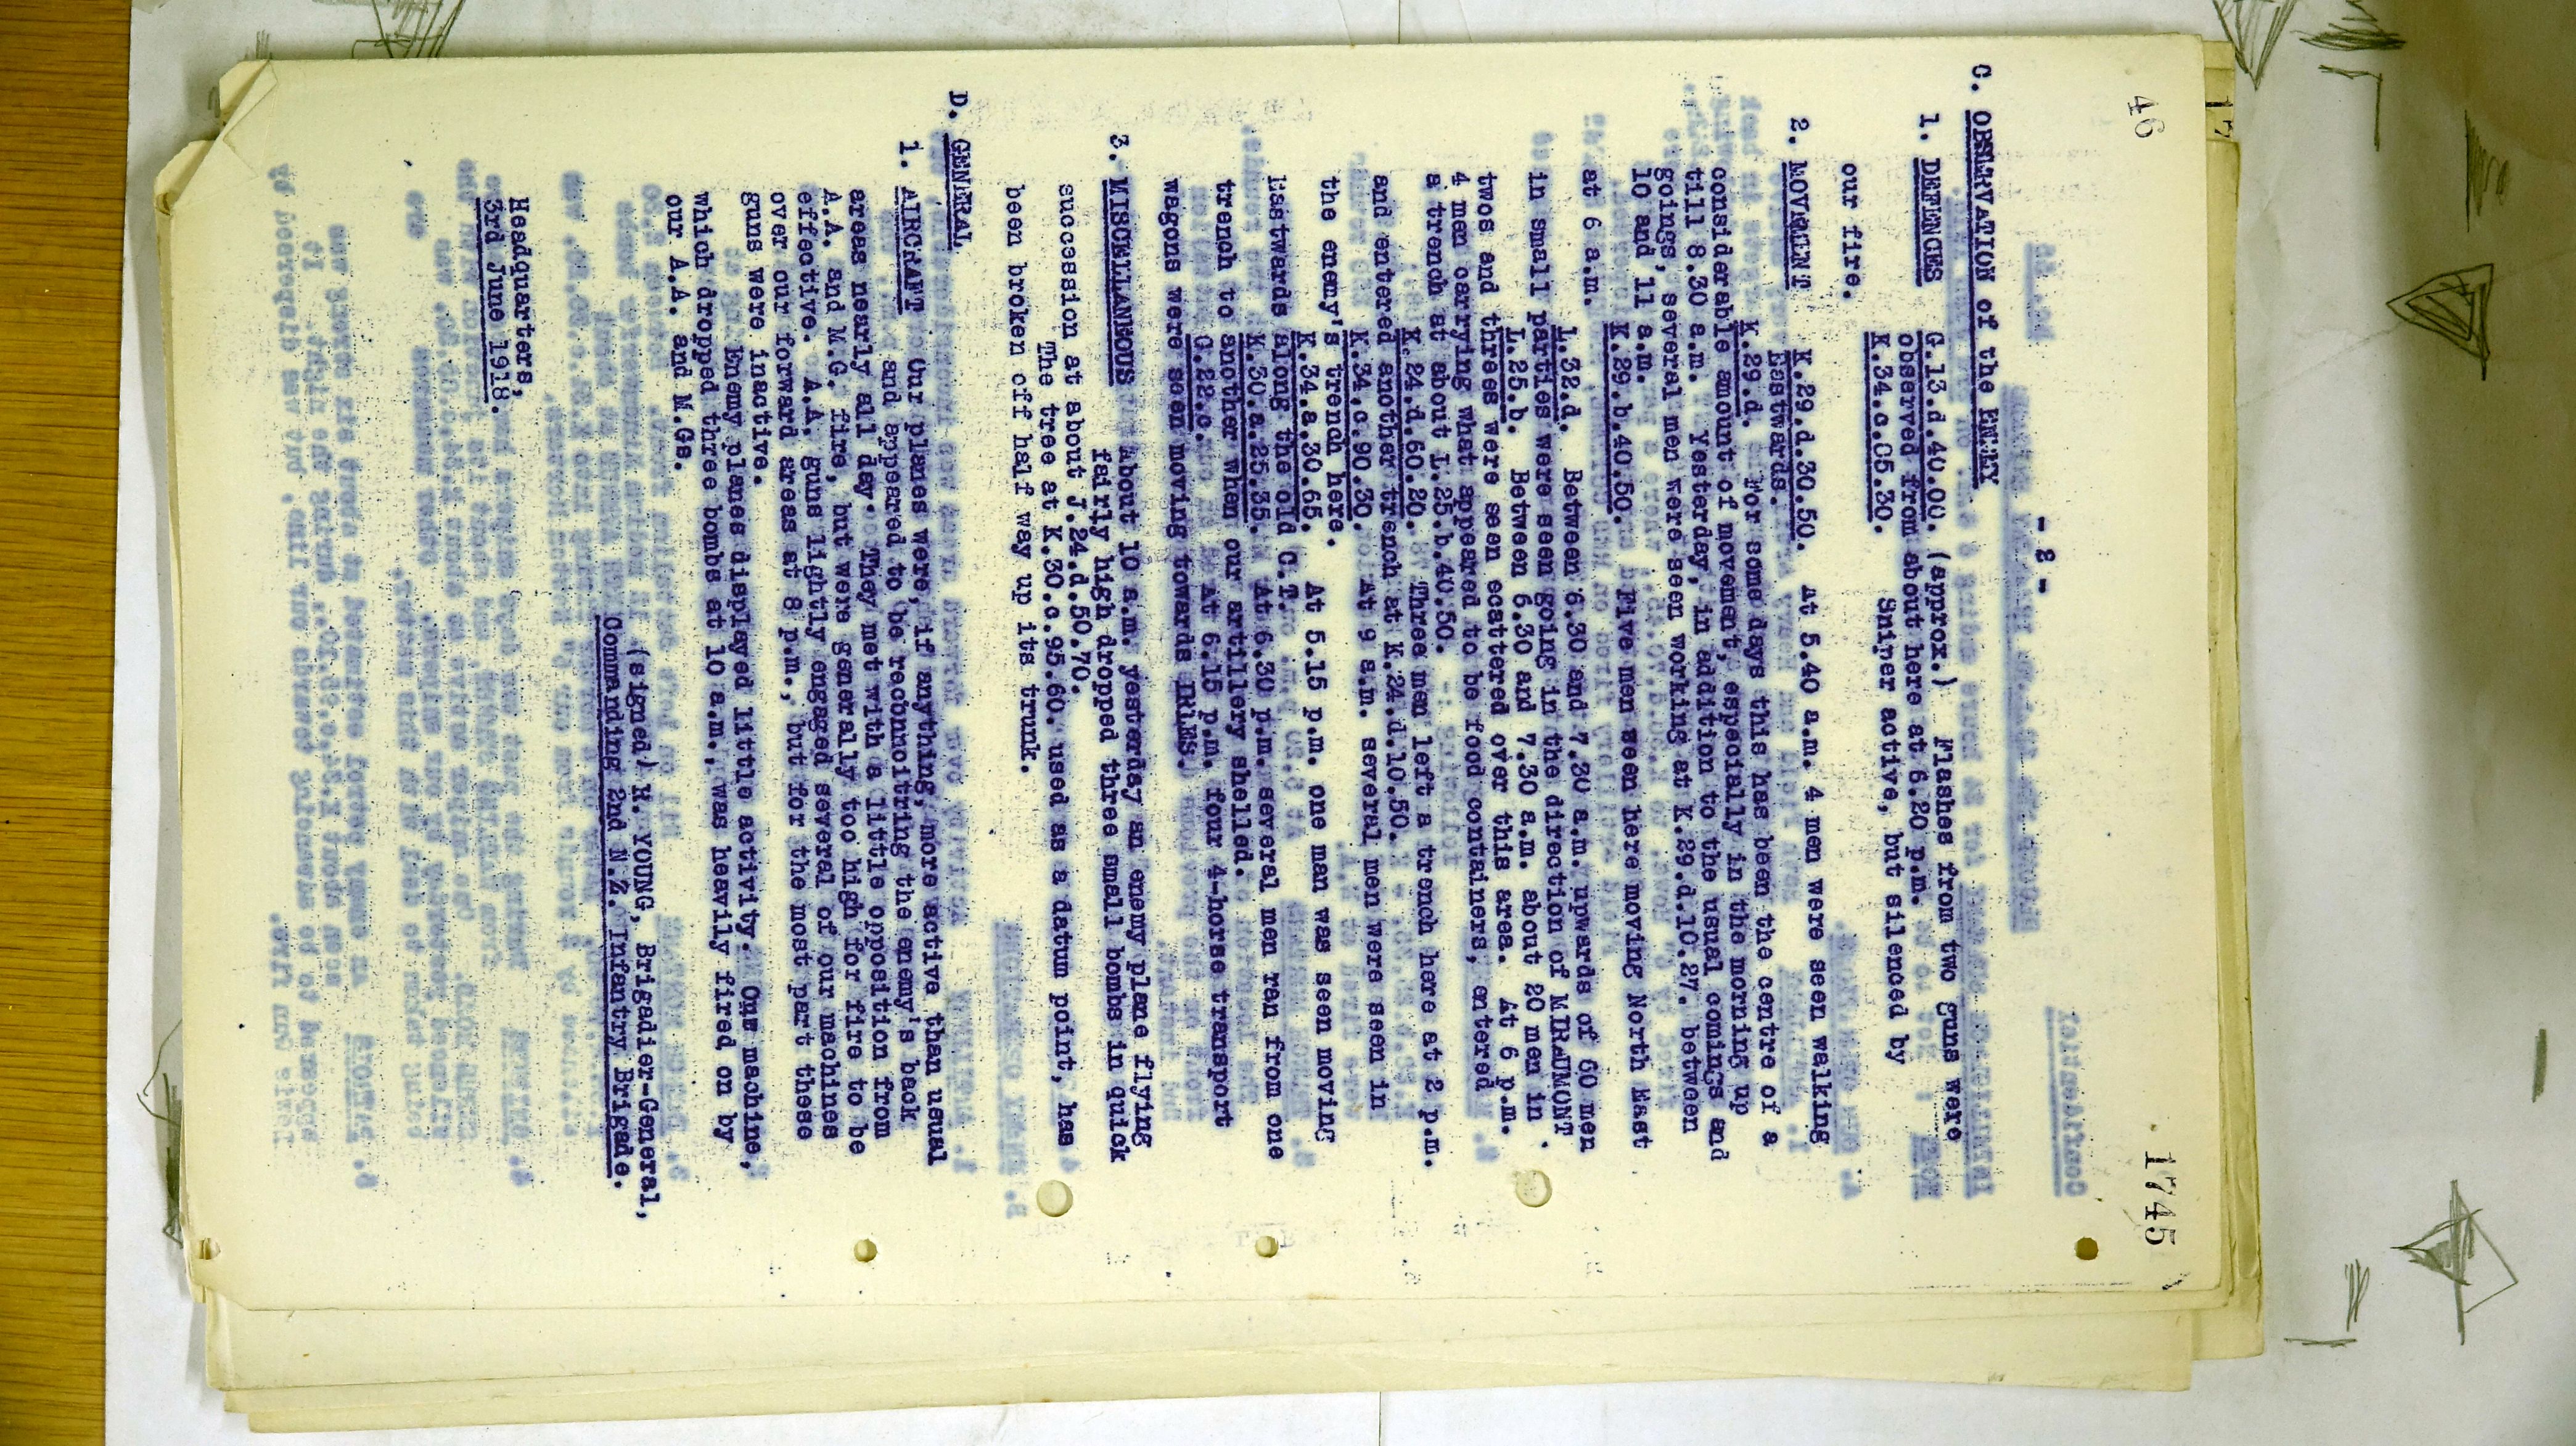 46
1745
- 2 -
C. OBSERVATION of the ENEMY
1. DEFENCES G.13.d.40.00. (approx.) Flashes from two guns were
observed from about here at 6.20 p.m.
K.34.c.05.30. Sniper active, but silenced by
our fire.
2. MOVEMENT K.29.d.30.50. At 5.40 a.m. 4 men were seen walking
Eastwards.
K.29.d. For some days this has been the centre of a
considerable amount of movement, especially in the morning up
till 8.30 a.m. Yesterday, in addition to the usual comings and
goings, several men were seen working at K.29.d.10.27. between
10 and 11 a.m.
K.29.b.40.50. Five men seen here moving North East
at 6 a.m.
L.32.d. Between 6.30 and 7.30 a.m. upwards of 60 men
in small parties were seen going in the direction of MIRAUMONT.
L.25.b. Between 6.30 and 7.30 a.m. about 20 men in
twos and threes were seen scattered over this area. At 6 p.m.
4 men carrying what appeared to be food containers, entered
a trench at about L.25.b.40.50.
K.24.d.60.20. Three men left a trench here at 2 p.m.
and entered another trench at K.24.d.10.50.
K.34.c.90.30. At 9 a.m. several men were seen in
the enemy's trench here.
K.34.a.30.65. At 5.15 p.m. one man was seen moving
Eastwards along the old C.T.
K.30.a.25.35. At 6.30 p.m. several men ran from one
trench to another when our artillery shelled.
G.22.c. At 6.15 p.m. four 4-horse transport
wagons were seen moving towards IRLES.
3. MISCELLANEOUS About 10 a.m. yesterday an enemy plane flying
fairly high dropped three small bombs in quick
succession at about J.24.d.50.70.
The tree at K.30.c.95.60. used as a datum point, has
been broken off half way up its trunk.
D. GENERAL
1. AIRCRAFT Our planes were, if anything, more active than usual
and appeared to be reconnoitring the enemy's back
areas nearly all day. They met with a little opposition from
A.A. and M.G. fire, but were generally too high for fire to be
effective. A.A. guns lightly engaged several of our machines
over our forward areas at 8 p.m., but for the most part these
guns were inactive.
Enemy planes displayed little activity. One machine,
which dropped three bombs at 10 a.m., was heavily fired on by
our A.A. and M.Gs.
(signed) R. YOUNG, Brigadier-General,
Commanding 2nd N.Z. Infantry Brigade.
Headquarters,
3rd June 1918.